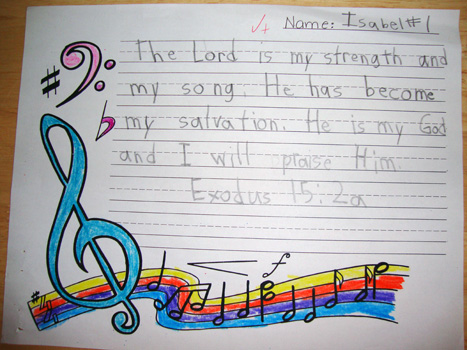 Name: Isabel #1
The Lord is my strength and
my song. He has become
my salvation. He is my God
and I will praise Him.
Exodus 15:2a